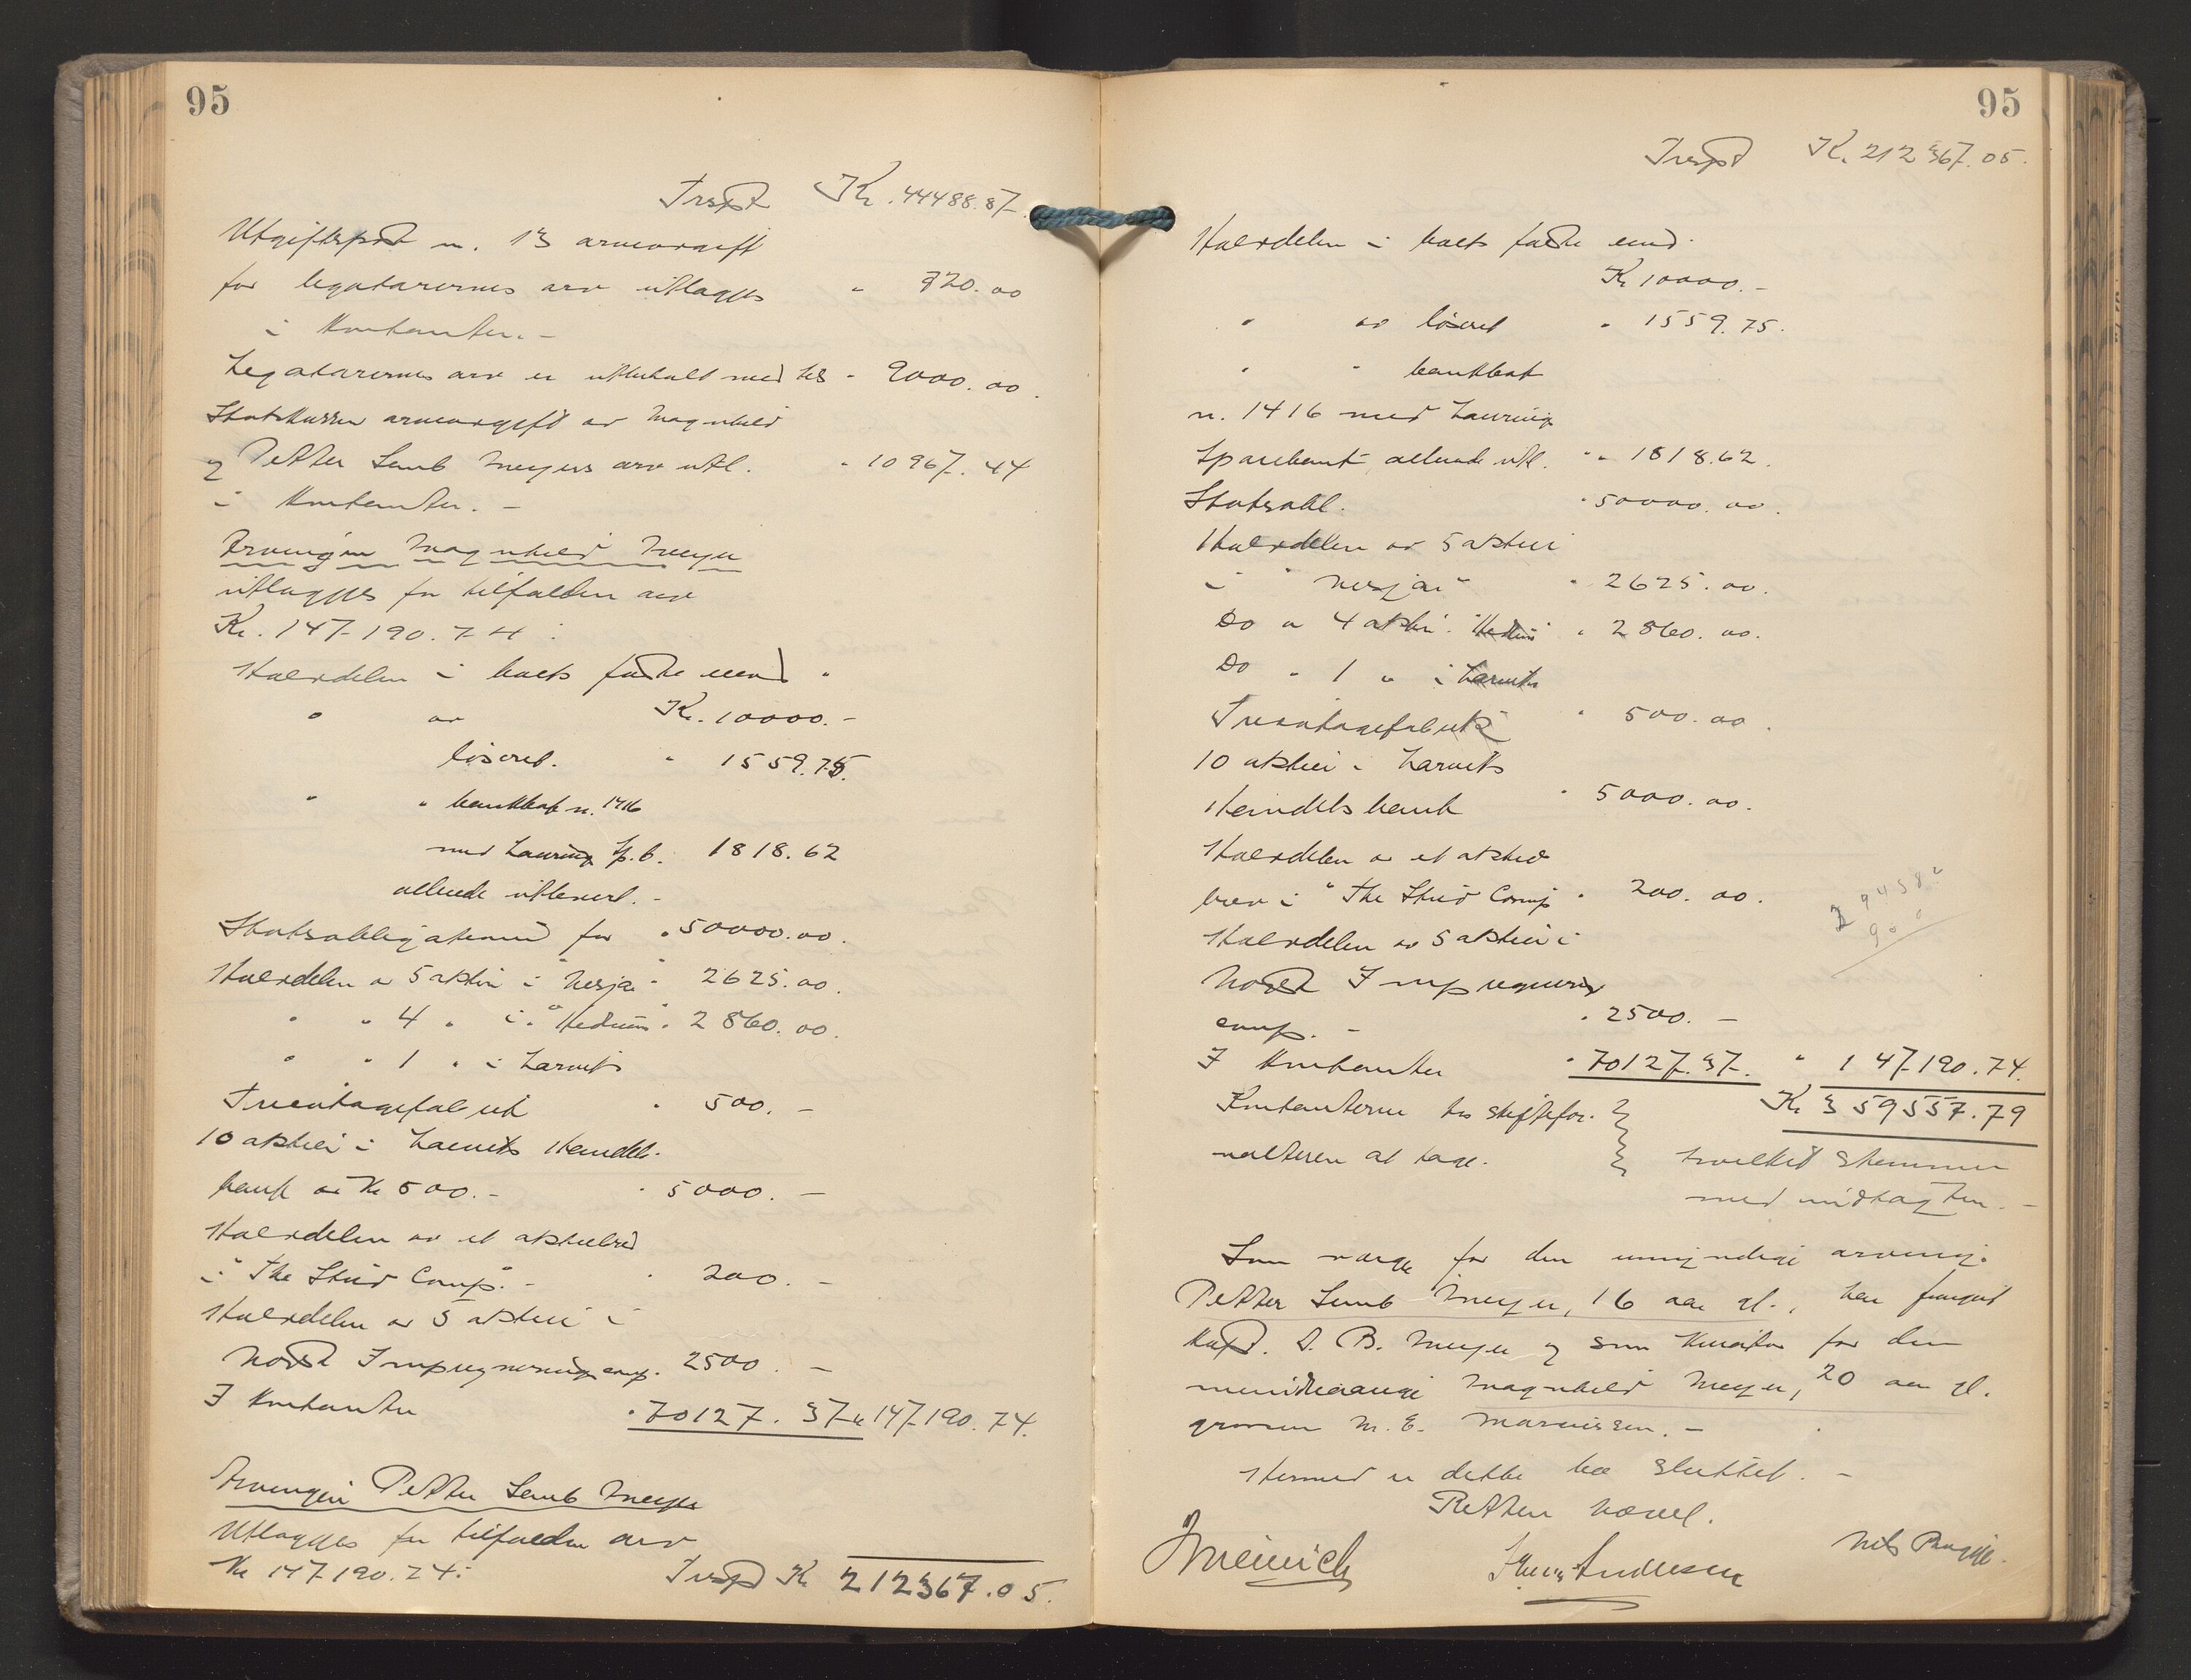 95
Trspt Kr. 44488.87
Utgiftspost n. 13 arveavgift
for legatarernes arv utlægges " 720.00
i kontanter. -
Legatarernes arv er utbetalt med tils. " 9000.00
Statskassen arveavgift av Magnhild
og Petter Lemb Meyers arv utl. " 10967.44
i kontanter. -
Arvingen Magnhild Meyer
utlægges for tilfalden arv
Kr. 147190.74:
Halvdelen i boets faste eiend.
" av Kr. 10000.-
løsøret. " 1559.75.
" " bankbok n. 1416
med Laurvig Sp.b. 1818.62
allerede utlevert. -
Statsobligationer for " 50000.00.
Halvdelen av 5 aktier i "Nesjar" 2625.00.
" " 4 " i "Hedrum" " 2860.00.
" " 1 " i Larviks
Træuldtagefabrik " 500. -
10 aktier i Larviks Handels-
bank av Kr 500.- " 5000. -
Halvdelen av et aktiebrev
i "The Stud Comp". - " 200. -
Halvdelen av 5 aktier i
Norsk Impregneringscomp. 2500. -
I kontanter " 70127.37 " 147190.74.
Arvingen Petter Lemb Meyer
Utlægges for tilfalden arv
Kr 147190.74: Trspt Kr 212367.05.
95
Trspt Kr. 212367.05.
Halvdelen i boets faste eiend.
Kr 10000.-
" av løsøret " 1559.75.
" " bankbok
n. 1416 med Laurvig
Sparebank, allerede utl. " 1818.62.
Statsobl. " 50000.00.
Halvdelen av 5 aktier
i "Nesjar" " 2625.00.
Do " 4 aktier "Hedrum" " 2860.00.
Do " 1 " i Larviks
" 500.00.
10 aktier i Larviks
Handelsbank " 5000.00.
Halvdelen av et aktie-
brev i "The Stud Comp " 200.00.
Halvdelen av 5 aktier i
Norsk Impregnerings
comp. - " 2500. -
I kontanter " 70127.37. " 147190.74.
Kontanterne hos skiftefor- Kr 359557.79
valteren at tage. hvilket stemmer
med indtægten. -
Som værge for den umyndige arving
Petter Lemb Meyer, 16 aar gl., har fungert
kapt. S. B. Meyer og som kurator for den
mindreaarige Magnhild Meyer, 20 aar gl.
grosser M. E. -
Hermed er dette bo sluttet. -
Retten hævet.